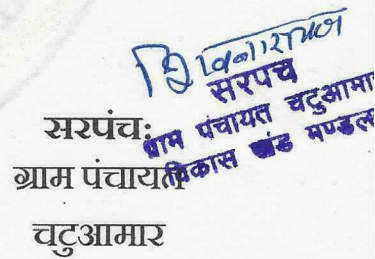 सरपंच
ग्राम पंचायत चटुआमार
विकास खंड मण्डला
सरपंच:
ग्राम पंचायत
चटुआमार